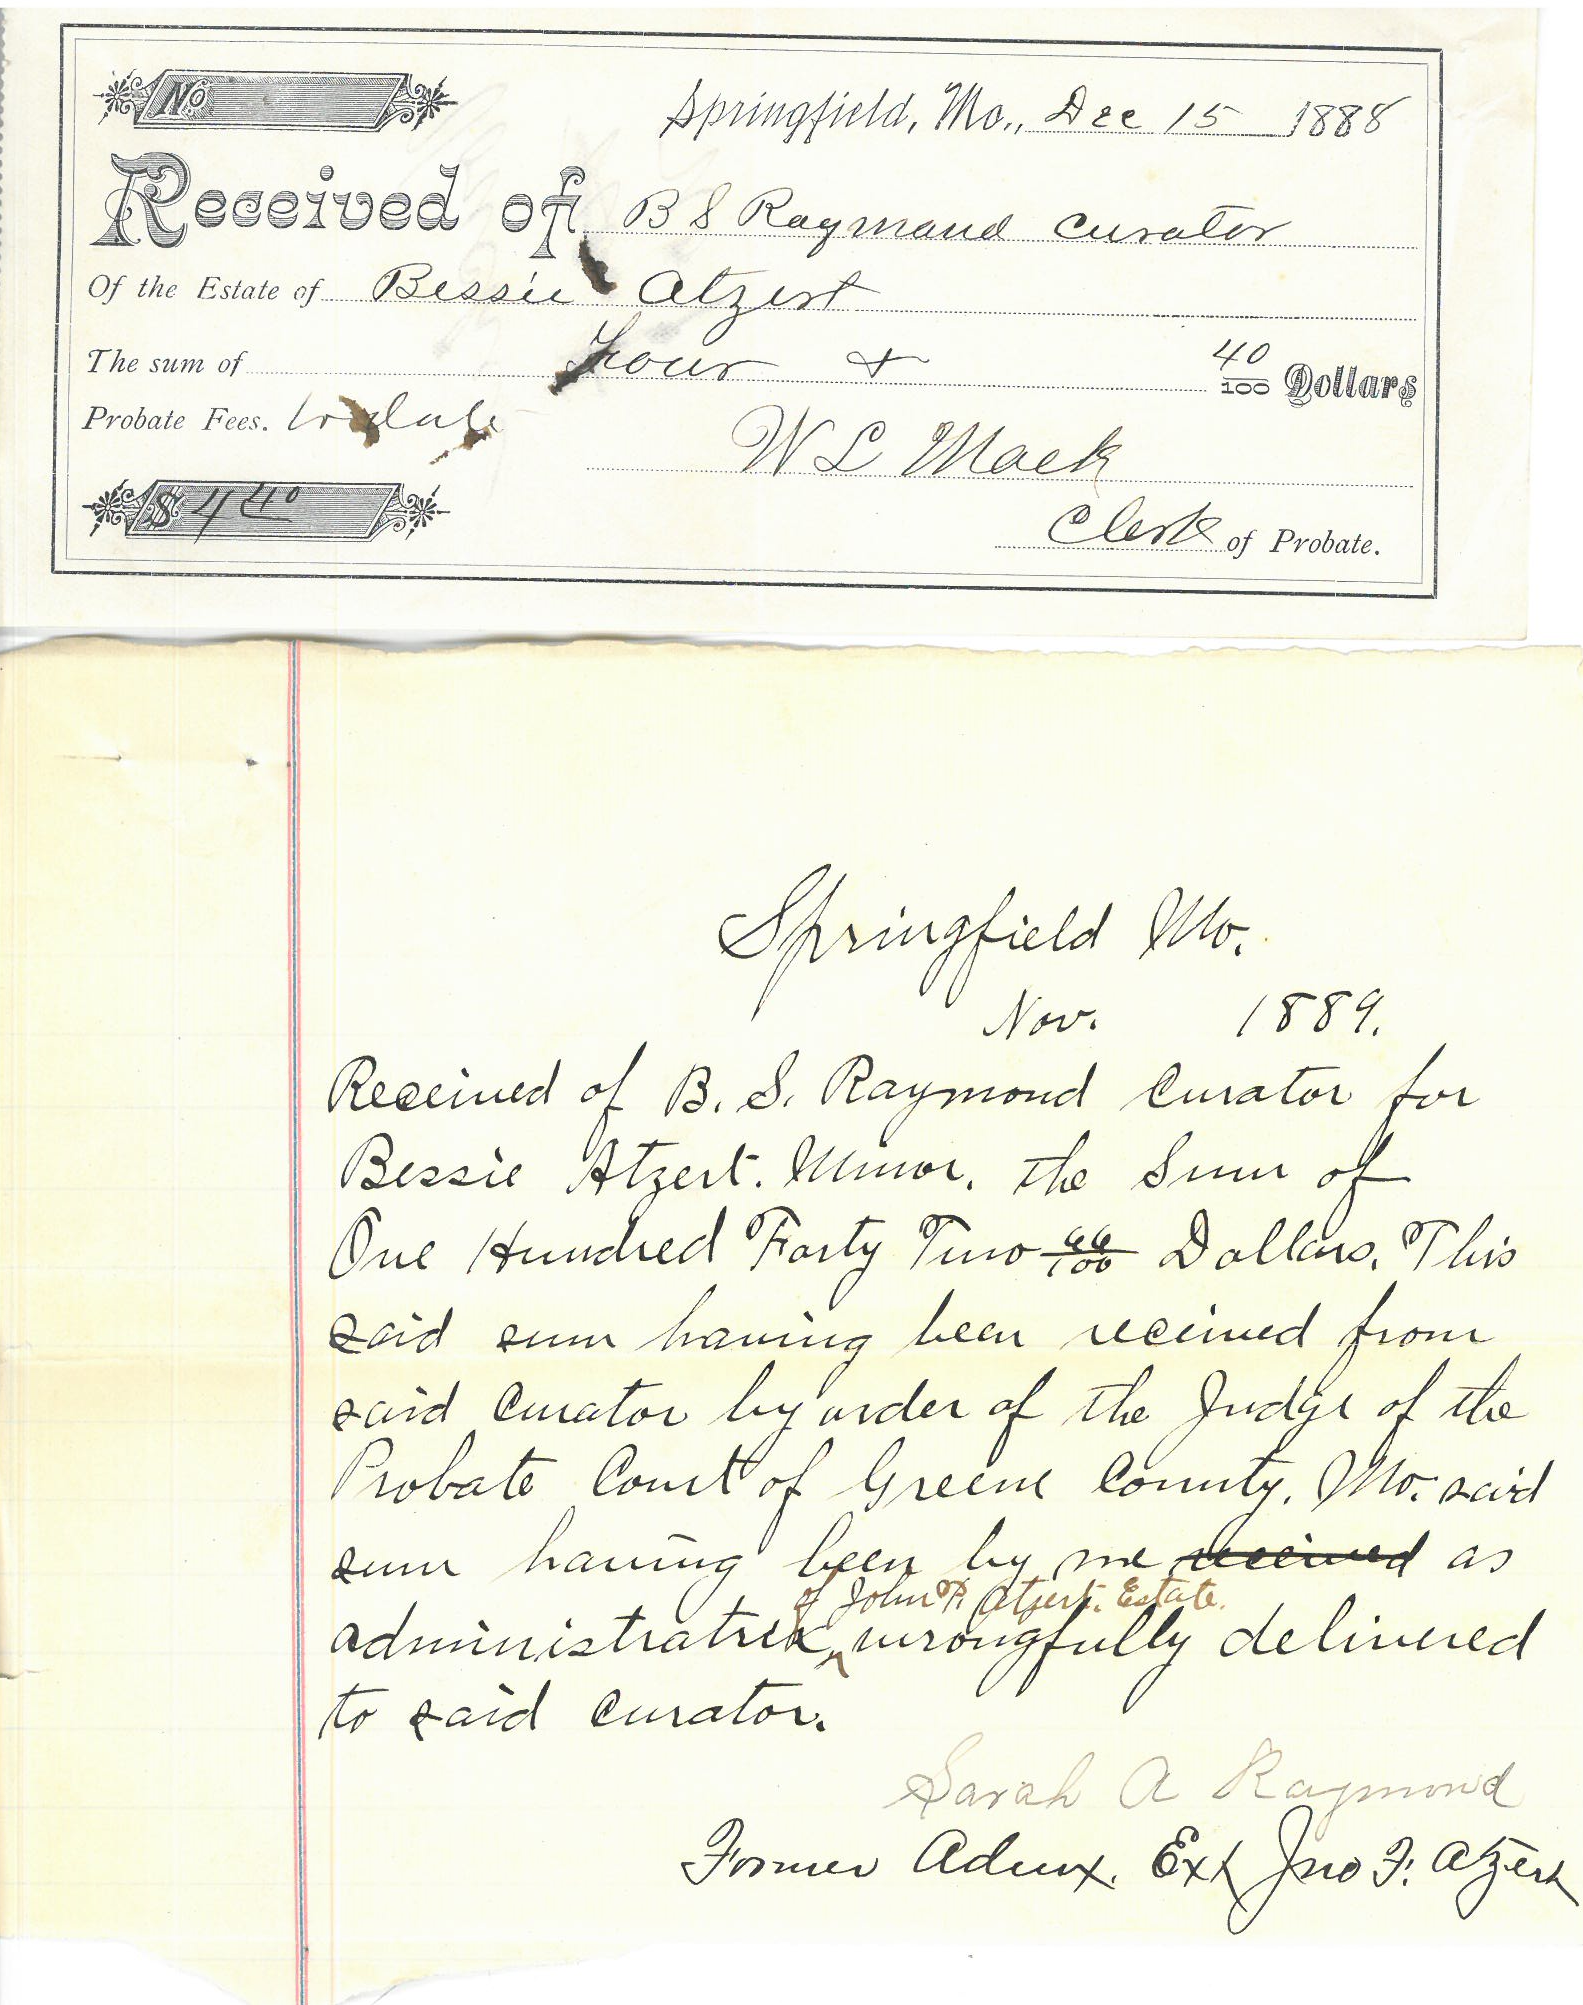 No
Springfield, Mo., Dec 15 1888
Received of B S Raymond curator
Of the Estate of Bessie Atzert
The sum of Four & 40/100 Dollars
Probate Fees. to date
W L Mack
$ 4 40
Clerk of Probate.
Springfield Mo.
Nov. 1889.
Received of B. S. Raymond Curator for
Bessie Atzert. Minor. the Sum of
One Hundred Forty Two 66/100 Dollars. This
said sum having been received from
said Curator by order of the Judge of the
Probate Court of Greene County, Mo. said
sum having been by me received as
of John F. Atzert. Estate.
administratrix, wrongfully delivered
to said curator.
Sarah A Raymond
Former Admx. Ext Jno F. Atzert